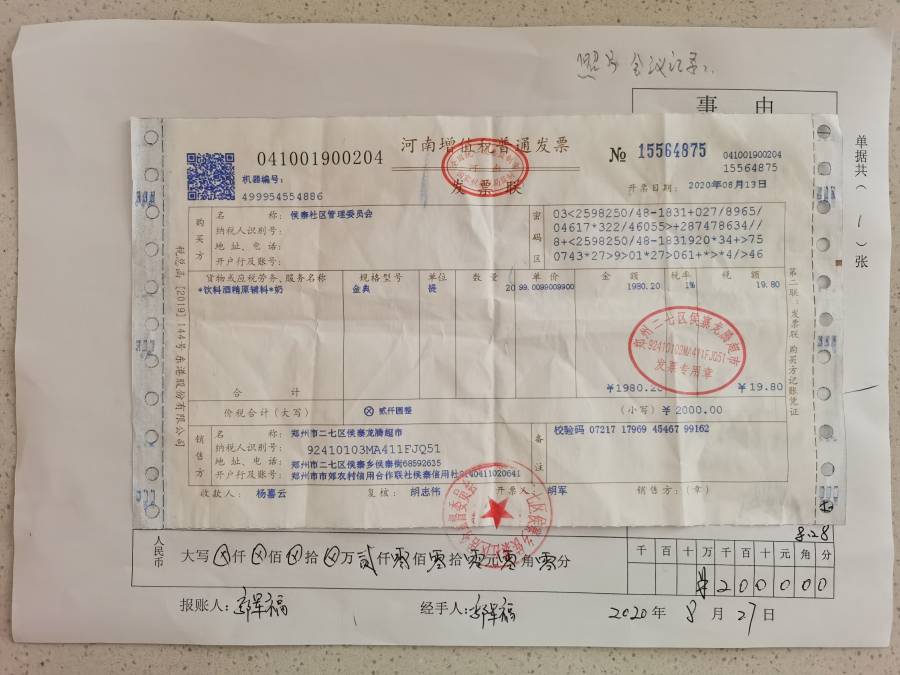 会议记录
事 由
单据共( 1 )张
041001900204
河南增值税普通发票
发票联
№ 15564875
041001900204
15564875
机器编号:
499954554886
开票日期: 2020年08月13日
购买方
名 称: 侯寨社区管理委员会
纳税人识别号:
地 址、电 话:
开户行及账号:
密码区
03<2598250/48-1831+027/8965/
04617*322/46055>+287478634//
8+<2598250/48-1831920*34+>75
0743*27>9>01*27>061+*>*4/>46
货物或应税劳务、服务名称 规格型号 单位 数 量 单 价 金 额 税率 税 额
*饮料酒精原辅料*奶 金典 提 20 99.0099009900 1980.20 1% 19.80
合 计 ¥1980.20 ¥19.80
价税合计(大写) ⊗ 贰仟圆整 (小写) ¥ 2000.00
郑州市二七区侯寨龙腾超市
92410103MA411FJQ51
发票专用章
销售方
名 称: 郑州市二七区侯寨龙腾超市
纳税人识别号: 92410103MA411FJQ51
地 址、电 话: 郑州市二七区侯寨乡侯寨街68592635
开户行及账号: 郑州市市郊农村信用合作联社侯寨信用社
备注
校验码 07217 17969 45467 99162
收款人: 杨喜云 复核: 胡志伟 开票人: 胡军 销售方:(章)
税总函[2019]144号 东港股份有限公司
第二联:发票联 购买方记账凭证
8.28
人民币
大写ⓧ仟ⓧ佰ⓧ拾ⓧ万贰仟零佰零拾零元零角零分
千 百 十 万 千 百 十 元 角 分
¥ 2 0 0 0 0 0
报账人: 经手人: 2020年 8月 27日